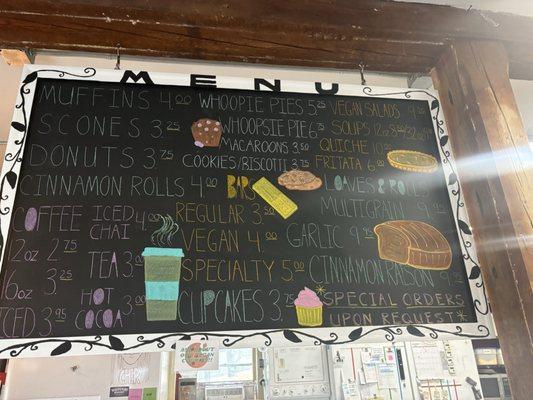 MENU
MUFFINS 4.00
SCONES 3.25
DONUTS 3.75
CINNAMON ROLLS 4.00
COFFEE
2oz 2.75
16oz 3.25
ICED 3.95
ICED CHAI 4.00
TEA 3.00
HOT COCOA 3.00
WHOOPIE PIES 5.25
WHOOPSIE PIE
MACAROONS 3.50
COOKIES/BISCOTTI 3.75
BARS
REGULAR 3.50
VEGAN 4.00
SPECIALTY 5.00
CUPCAKES 3.75
VEGAN SALADS
SOUPS 12oz
QUICHE 10.00
FRITATA 6.00
LOAVES & ROLLS
MULTIGRAIN
GARLIC
CINNAMON RAISIN
*SPECIAL ORDERS
UPON REQUEST*